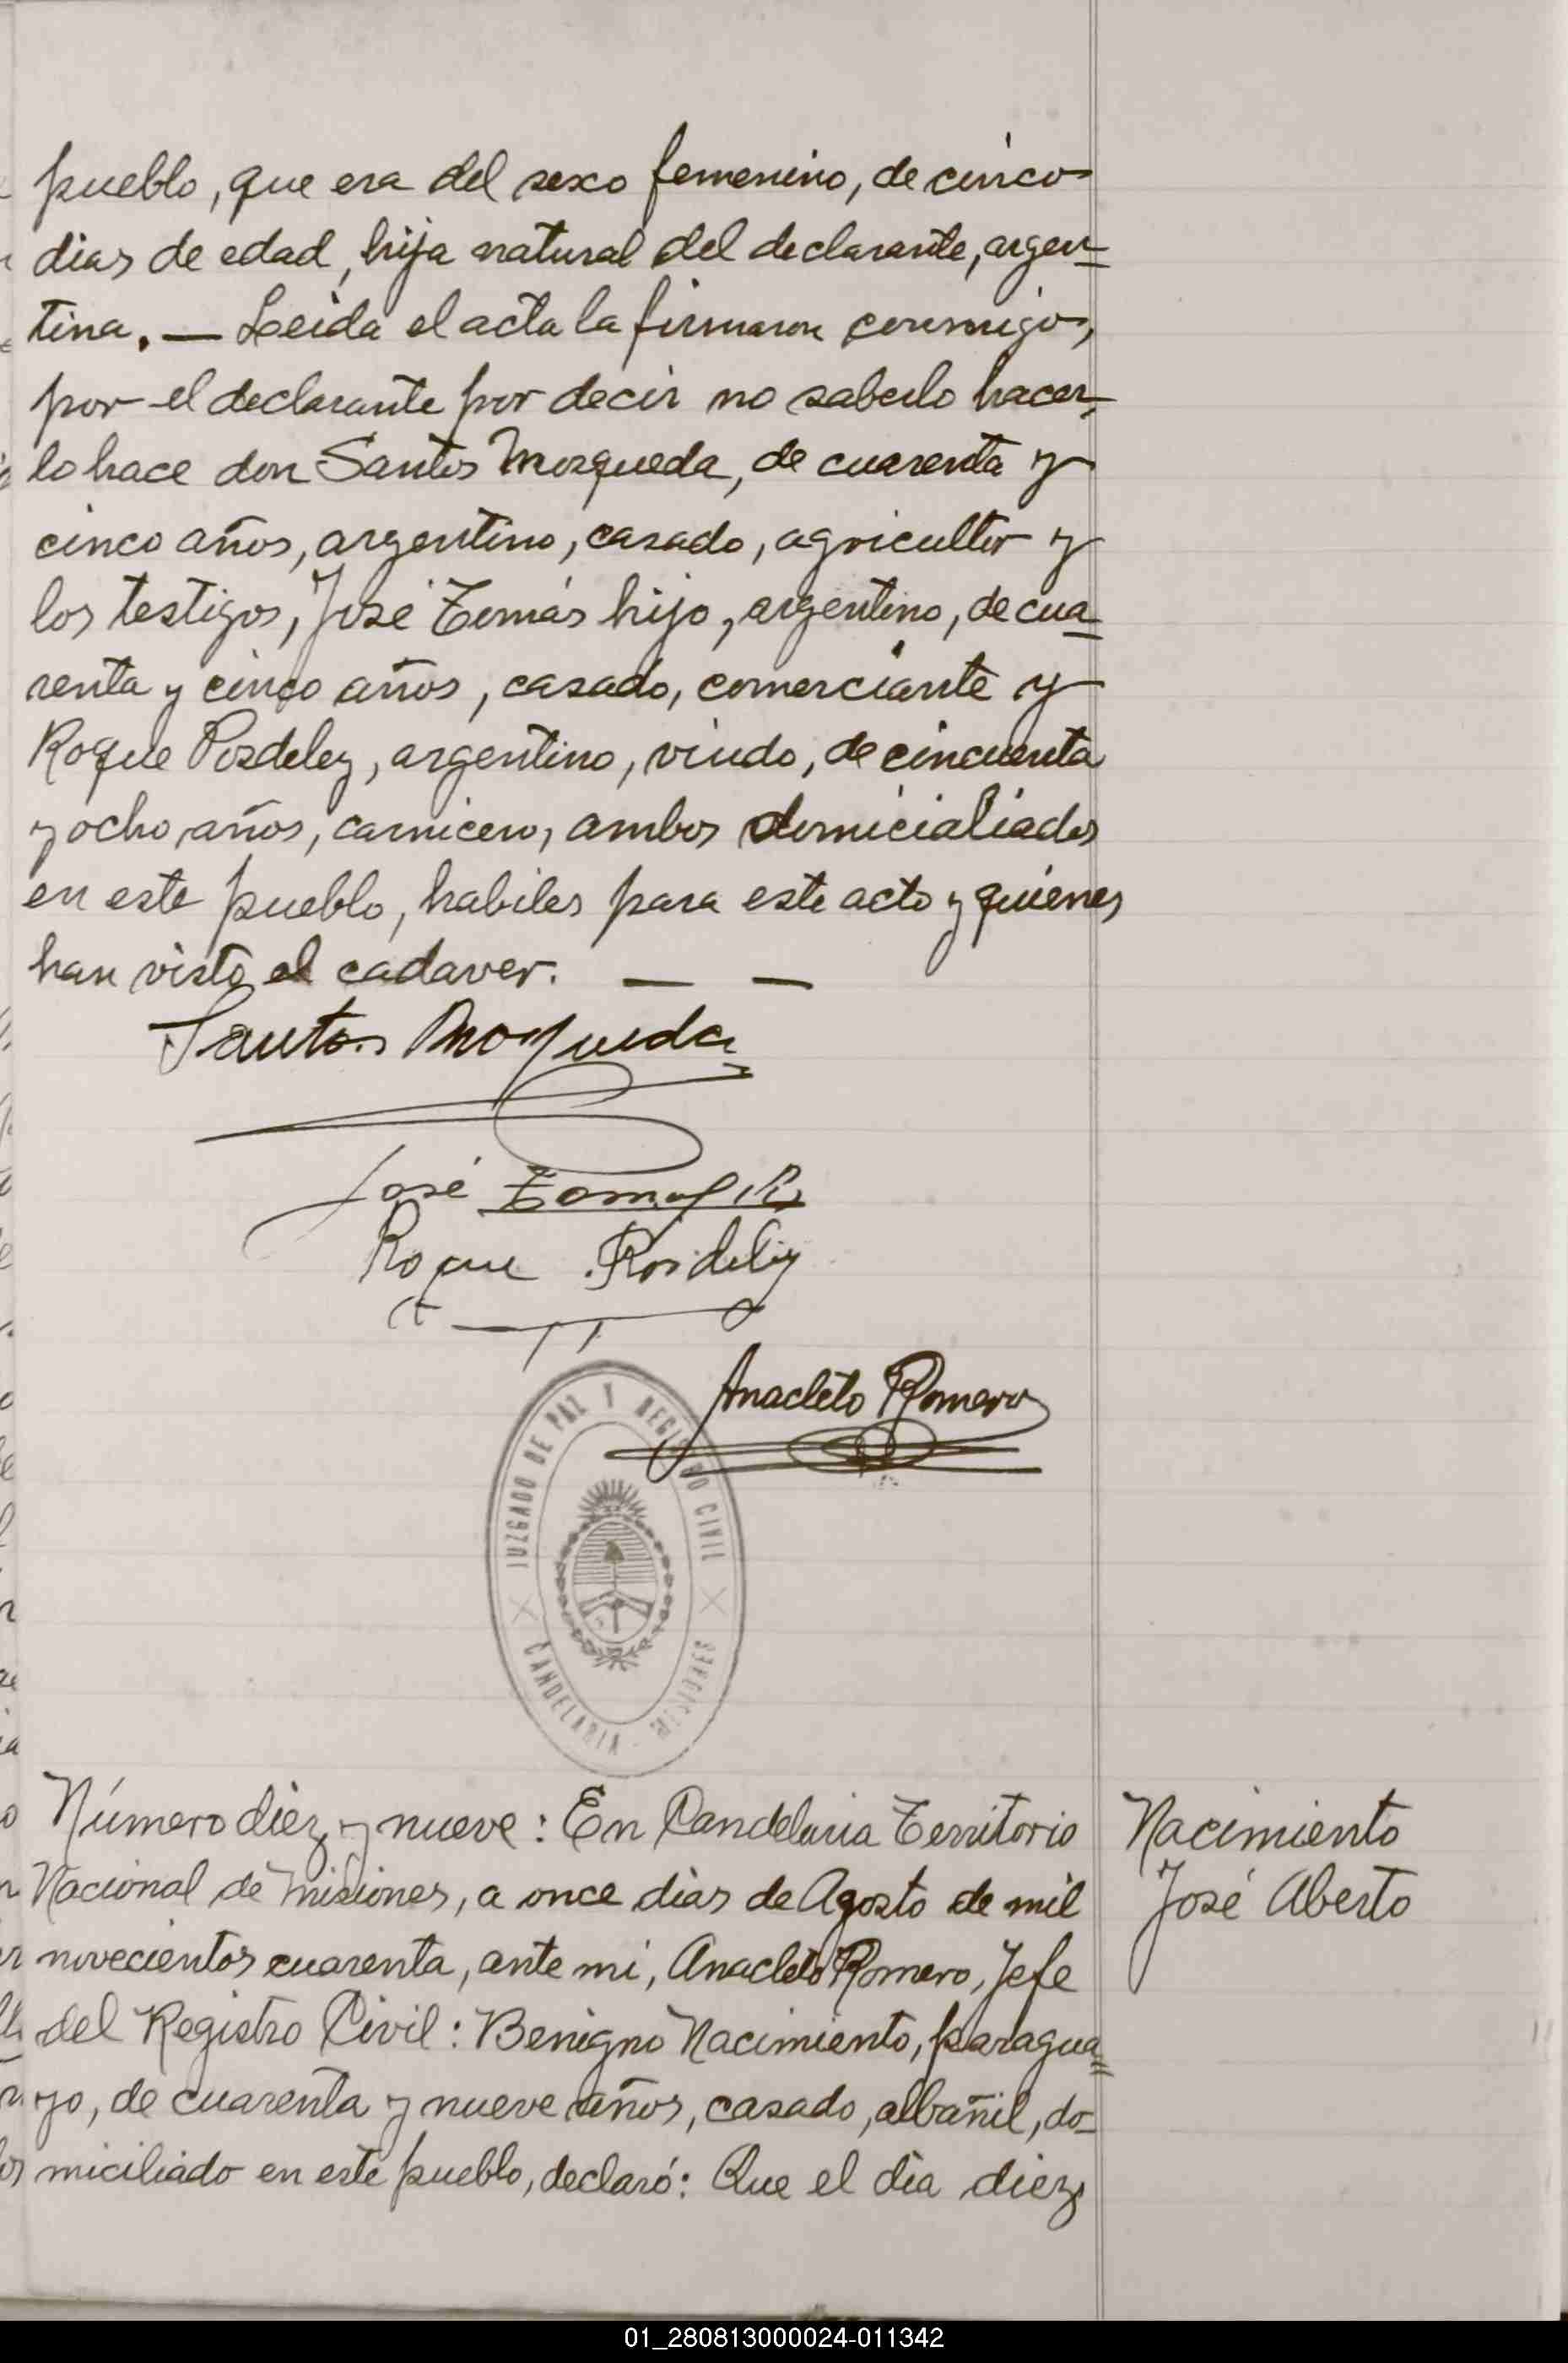 pueblo, que era del sexo femenino, de cinco
dias de edad, hija natural del declarante, argen=
tina. — Leida el acta la firmaron conmigo,
por el declarante por decir no saberlo hacer,
lo hace don Santos Mosqueda, de cuarenta y
cinco años, argentino, casado, agricultor y
los testigos, José Tomás hijo, argentino, de cua=
renta y cinco años, casado, comerciante y
Roque Posdeley, argentino, viudo, de cincuenta
y ocho años, carnicero, ambos domicialiados
en este pueblo, habiles para este acto y quienes
han visto el cadaver. — —
Santos Mosqueda
José Tomas
Roque Posdeley
Anacleto Romero
JUZGADO DE PAZ Y REGISTRO CIVIL
CANDELARIA - MISIONES
Número diez y nueve: En Candelaria Territorio
Nacional de Misiones, a once dias de Agosto de mil
novecientos cuarenta, ante mi, Anacleto Romero, Jefe
del Registro Civil: Benigno Nacimiento, paragua=
yo, de cuarenta y nueve años, casado, albañil, do=
miciliado en este pueblo, declaró: Que el dia diez
Nacimiento
José Aberto
01_280813000024-011342